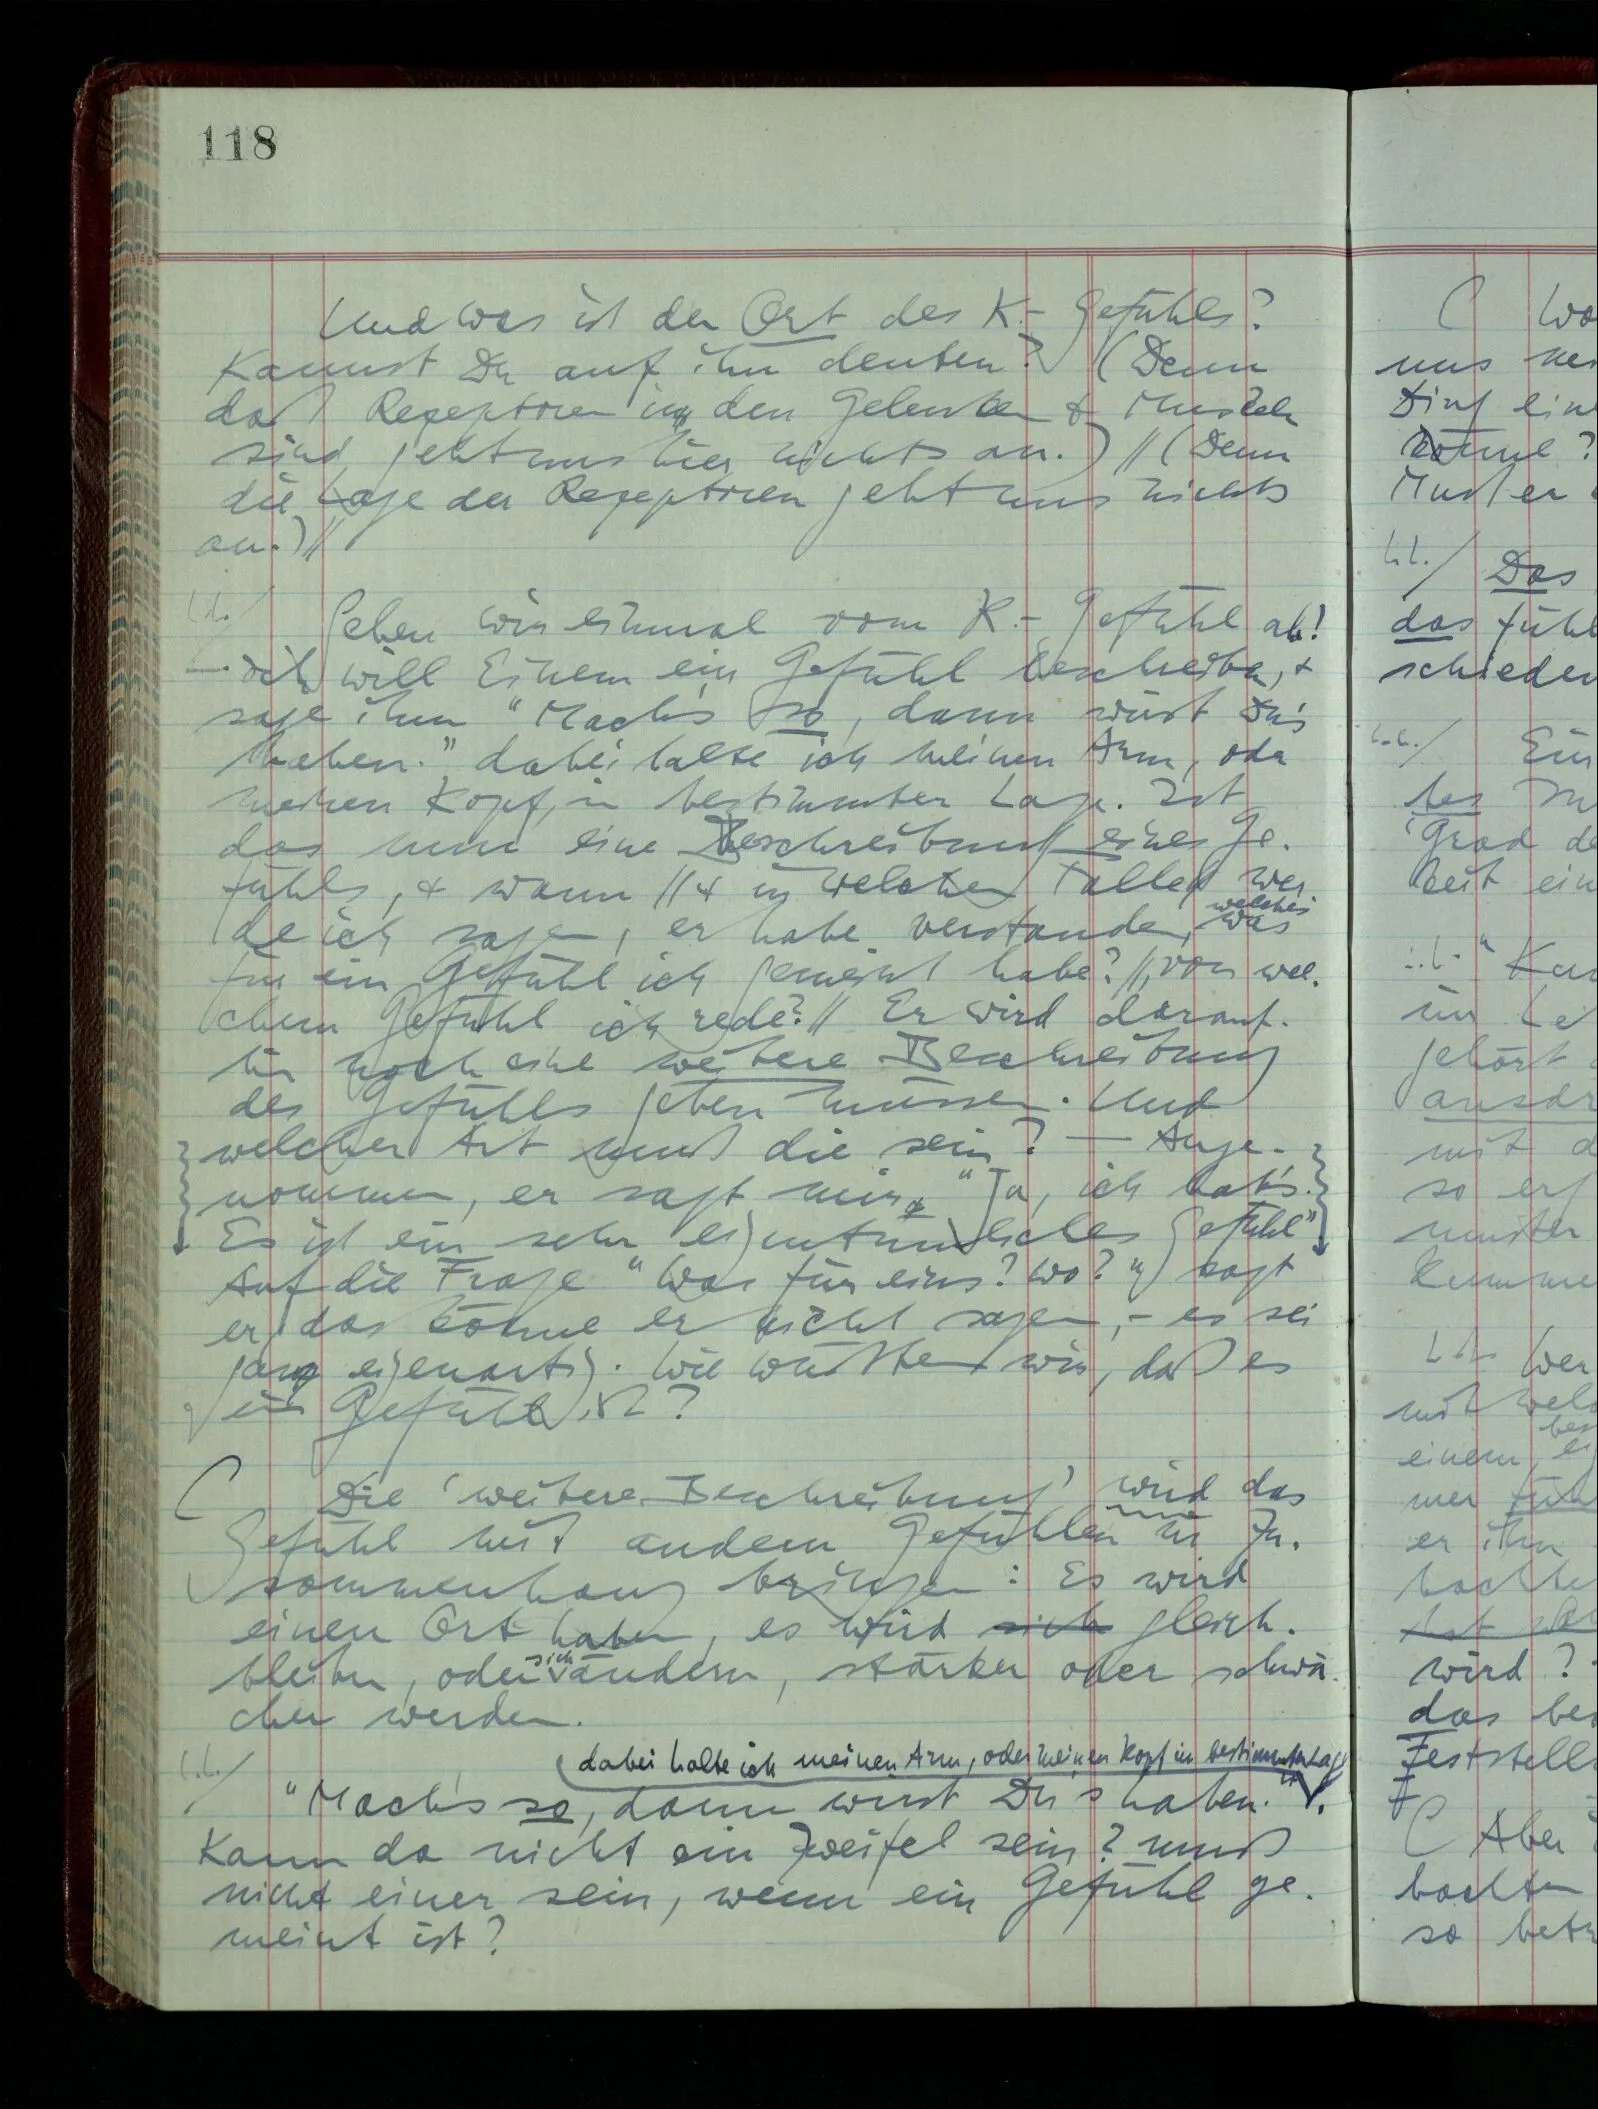 118
Und was ist der Ort des K.-Gefühls?
Kannst Du auf ihn deuten? (Denn
daß Rezeptoren in den Gelenken & Muskeln
sind geht uns hier nichts an.) // (Denn
die Lage der Rezeptoren geht uns nichts
an.) //
Sehen wir einmal vom K.-Gefühl ab!
— Ich will Einem ein Gefühl beschreiben, &
sage ihm "Mach's so, dann wirst Du's
haben." dabei halte ich meinen Arm, oder
meinen Kopf, in bestimmter Lage. Ist
das nun eine Beschreibung eines Ge-
fühls, & wann // & in welchem Falle // wer-
de ich sagen, er habe verstanden, was
welches
für ein Gefühl ich gemeint habe? //, von wel-
chem Gefühl ich rede? // Er wird darauf-
hin noch eine weitere Beschreibung
des Gefühls geben müssen. Und
welcher Art muß die sein? — Ange-
nommen, er sagt mir: "Ja, ich hab's.
Es ist ein sehr eigentümliches Gefühl"
Auf die Frage "Was für eins? Wo?" sagt
er das könne er nicht sagen, – es sei
ganz eigenartig. Wie wüßten wir, daß es
ein Gefühl ist?
C Die 'weitere Beschreibung' wird das
Gefühl mit andern Gefühlen in Zu-
sammenhang bringen: Es wird
einen Ort haben, es wird sich gleich-
bleiben, oder sich ändern, stärker oder schwä-
cher werden.
dabei halte ich meinen Arm, oder meinen Kopf in bestimmter Lage
"Mach's so, dann wirst Du's haben."
Kann da nicht ein Zweifel sein? muß
nicht einer sein, wenn ein Gefühl ge-
meint ist?
C
uns
Ding
könne?
Das
das fühl
schieden
des
'Grad
ein
gehört
mit
so
Wer
einem
er ihn
wird?
das
C Aber
so